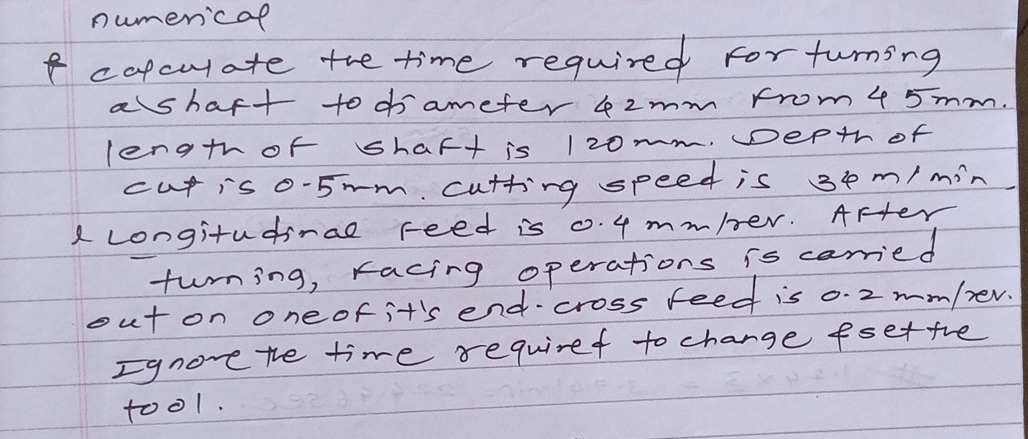 numerical
calculate the time required for turning
a shaft to diameter 42mm from 45mm.
length of shaft is 120mm. Depth of
cut is 0.5mm. cutting speed is m/min
& Longitudinal Feed is 0.4 mm/rev. After
turning, facing operations is carried
out on one of it's end. cross feed is 0.2 mm/rev.
Ignore the time required to change & set the
tool.